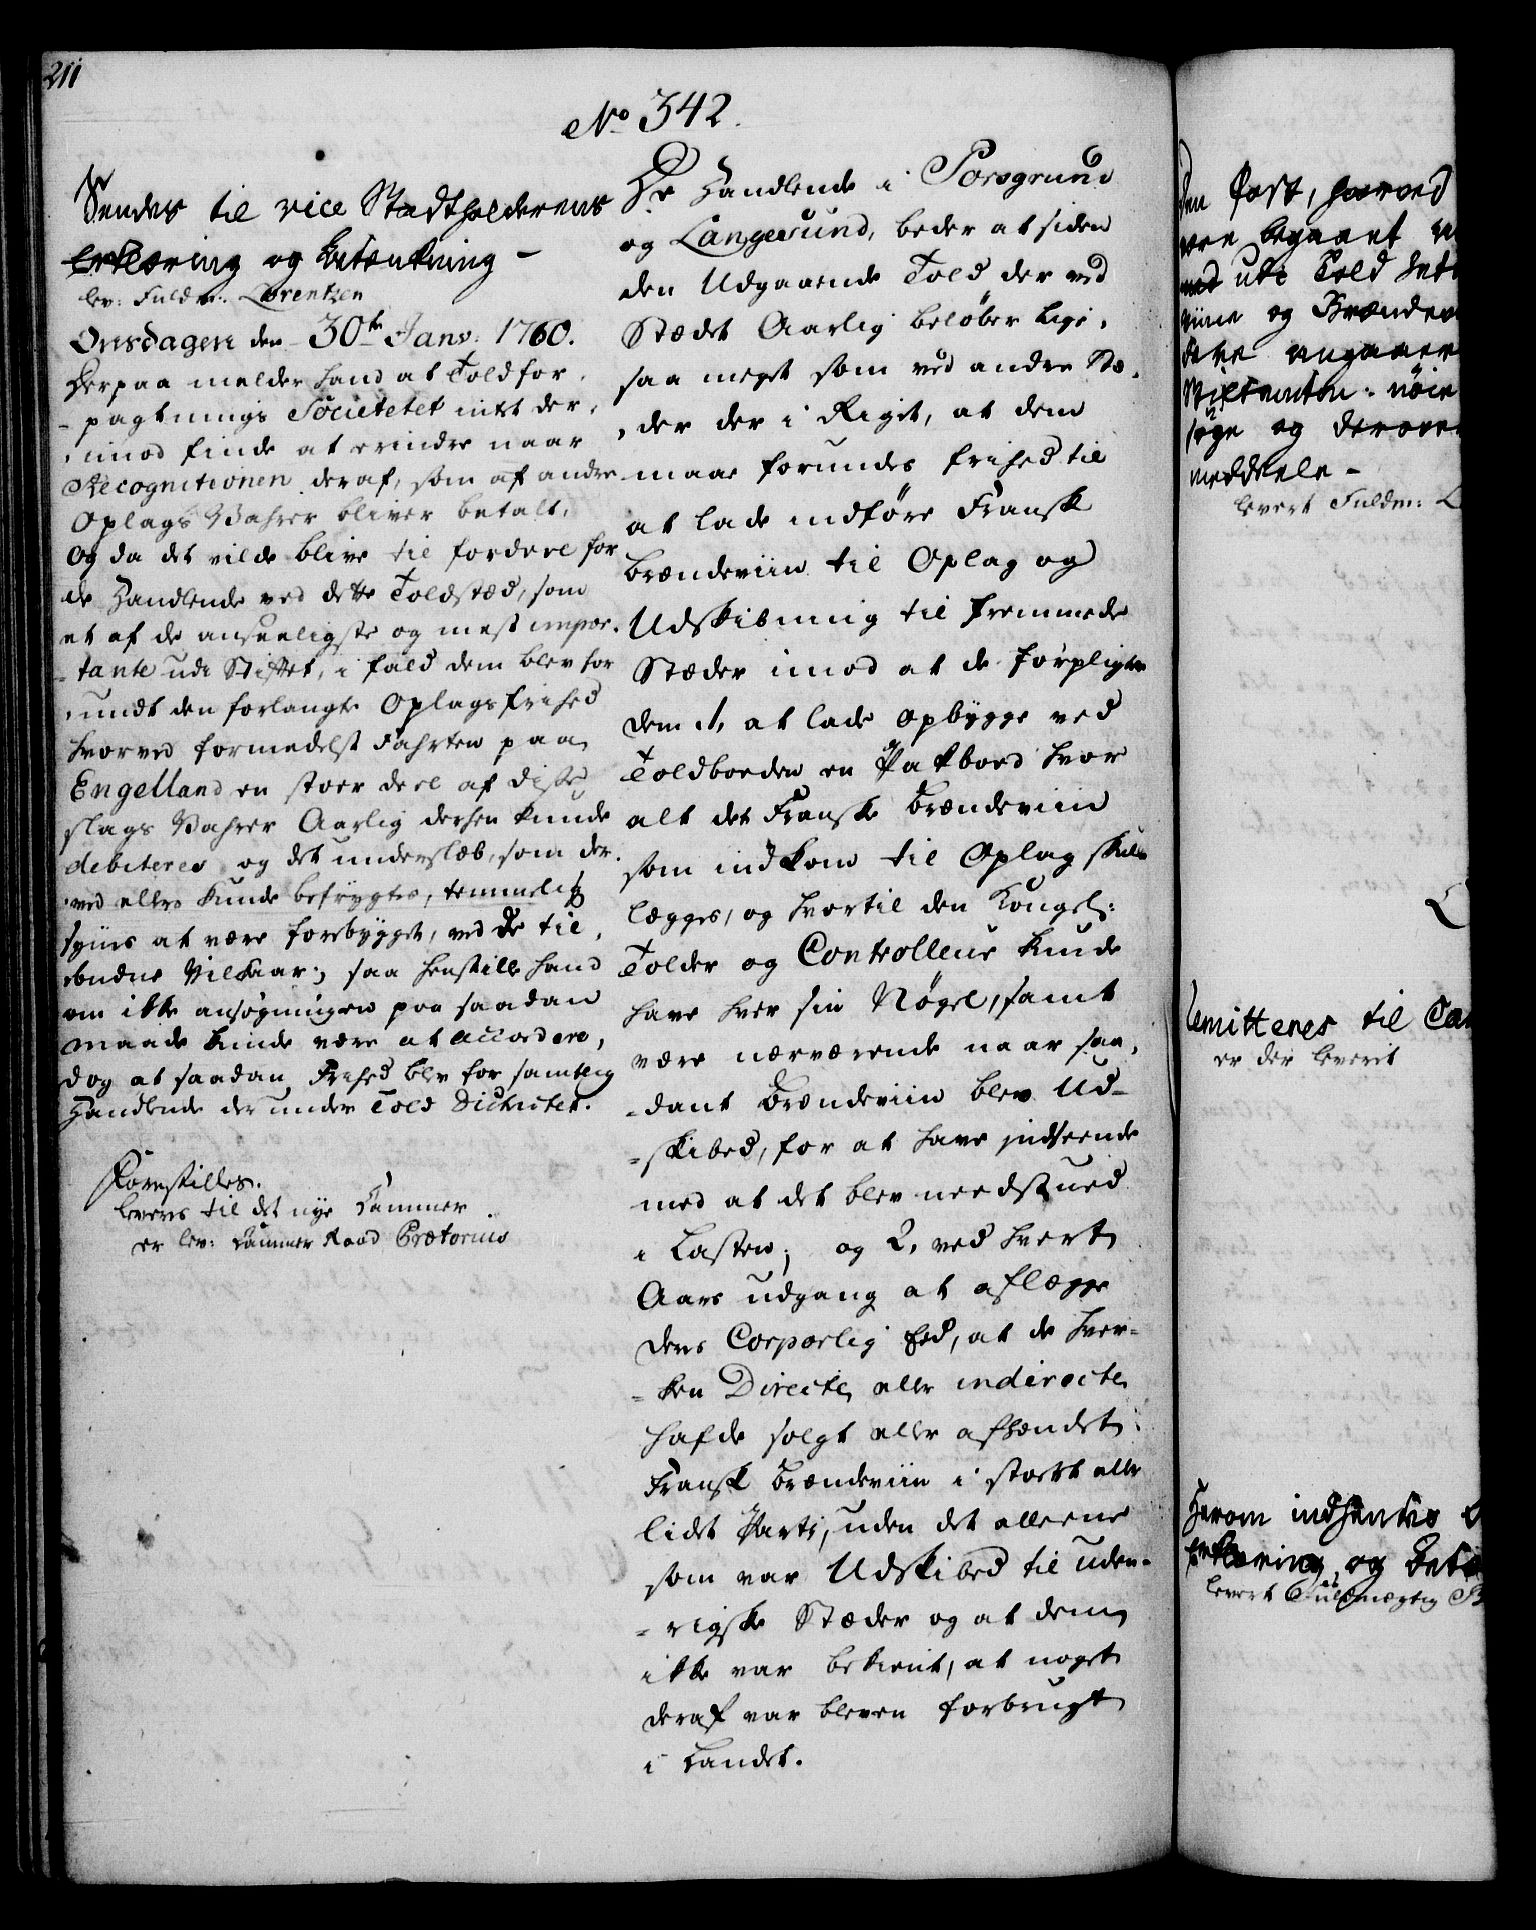 211
No 342.
Sendes til vice Stadtholderens
Erklæring og Betænkning -
lev: Fuldm: Lorentzen
Onsdagen den 30te Janv: 1760.
Herpaa melder hand at Toldfor-
-pagtnings Societetet intet der-
-imod finde at erindre naar
Recognitionen deraf, som af andre
Oplags Wahrer bliver betalt.
Og da det vilde blive til fordeel for
de Handlende ved dette Toldsted, som
et af de anseeligste og mest impor-
-tante udi Stiftet, i fald dem blev for
-undt den forlangte Oplagsfrihed
hvorved formedelst Fahrten paa
Engelland en stoer deel af disse
slags Wahrer Aarlig derhen kunde
debiteres og det underslæb, som der-
-ved ellers kunde befrygtes, temmelig
synes at være forebygget, ved de til-
-budne Vilkaar; saa henstille hand
om ikke ansøgningen paa saadan
maade kunde være at accordere,
dog at saadan Frihed blev for samtlig
Handlende der under Told Districtet.
Forestilles.
levers til det nye Cammer
er lev: Cammer Raad Prætorius
De Handlende i Porsgrund
og Langesund, beder at siden
den Udgaaende Told der ved
Stædet Aarlig beløber lige-
saa meget som ved andre Stæ-
-der der i Riget, at dem
maae forundes frihed til
at lade indføre Fransk
Brændeviin til Oplag og
Udskibning til fremmede
Stæder imod at de forpligter
dem 1, at lade opbygge ved
Toldboeden en Pakboed hvor
alt det Franske Brændeviin
som indkom til Oplag skulle
lægges, og hvortil den Kongel:
Tolder og Controlleur kunde
have hver sin Nøgel, samt
være nærværende naar saa-
-dant Brændeviin blev Ud-
-skibed, for at have indseende
med at det blev needstued
i Lasten; og 2, ved hvert
Aars udgang at aflægge
deres Corporlig Eed, at de hver-
-ken Directe eller indirecte
hafde solgt eller afhændet
Fransk Brændeviin i stort eller
lidet Parti, uden det alleene
som var Udskibed til uden-
-rigske Stæder og at dem
ikke var bekient, at noget
deraf var bleven forbrugt
i Landet.
den Post, hvorved
være begaaet
udi Told
viine og Brændev
søge og derover
meddeele -
levert Fuldm: L
Remitteres til Cam
er der leverit
Herom indhentes
Erklæring og Betæ
levert Fuldmægtig